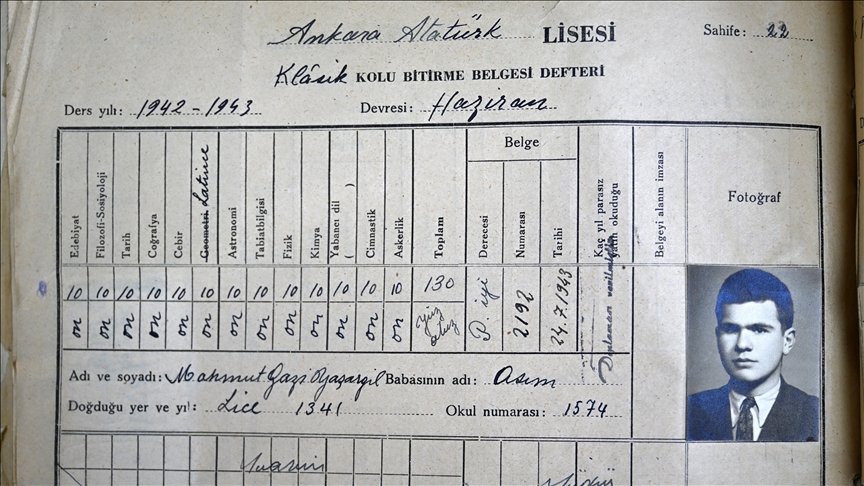 Ankara Atatürk LİSESİ Sahife: 22
Klâsik KOLU BİTİRME BELGESİ DEFTERİ
Ders yılı: 1942-1943 Devresi: Haziran
Edebiyat
Filozofi-Sosiyoloji
Tarih
Coğrafya
Cebir
Geometri Latince
Astronomi
Tabiatbilgisi
Fizik
Kimya
Yabancı dil ( )
Cimnastik
Askerlik
Toplam
Belge
Derecesi
Numarası
Tarihi
Kaç yıl parasız yatılı okuduğu
Belgeyi alanın imzası
Fotoğraf
10 10 10 10 10 10 10 10 10 10 10 10 10 130
on on on on on on on on on on on on on yüz otuz
P. iyi
2192
24.7.1943
Adı ve soyadı: Mahmut Gazi Yaşargil Babasının adı: Asım
Doğduğu yer ve yıl: Lice 1341 Okul numarası: 1574